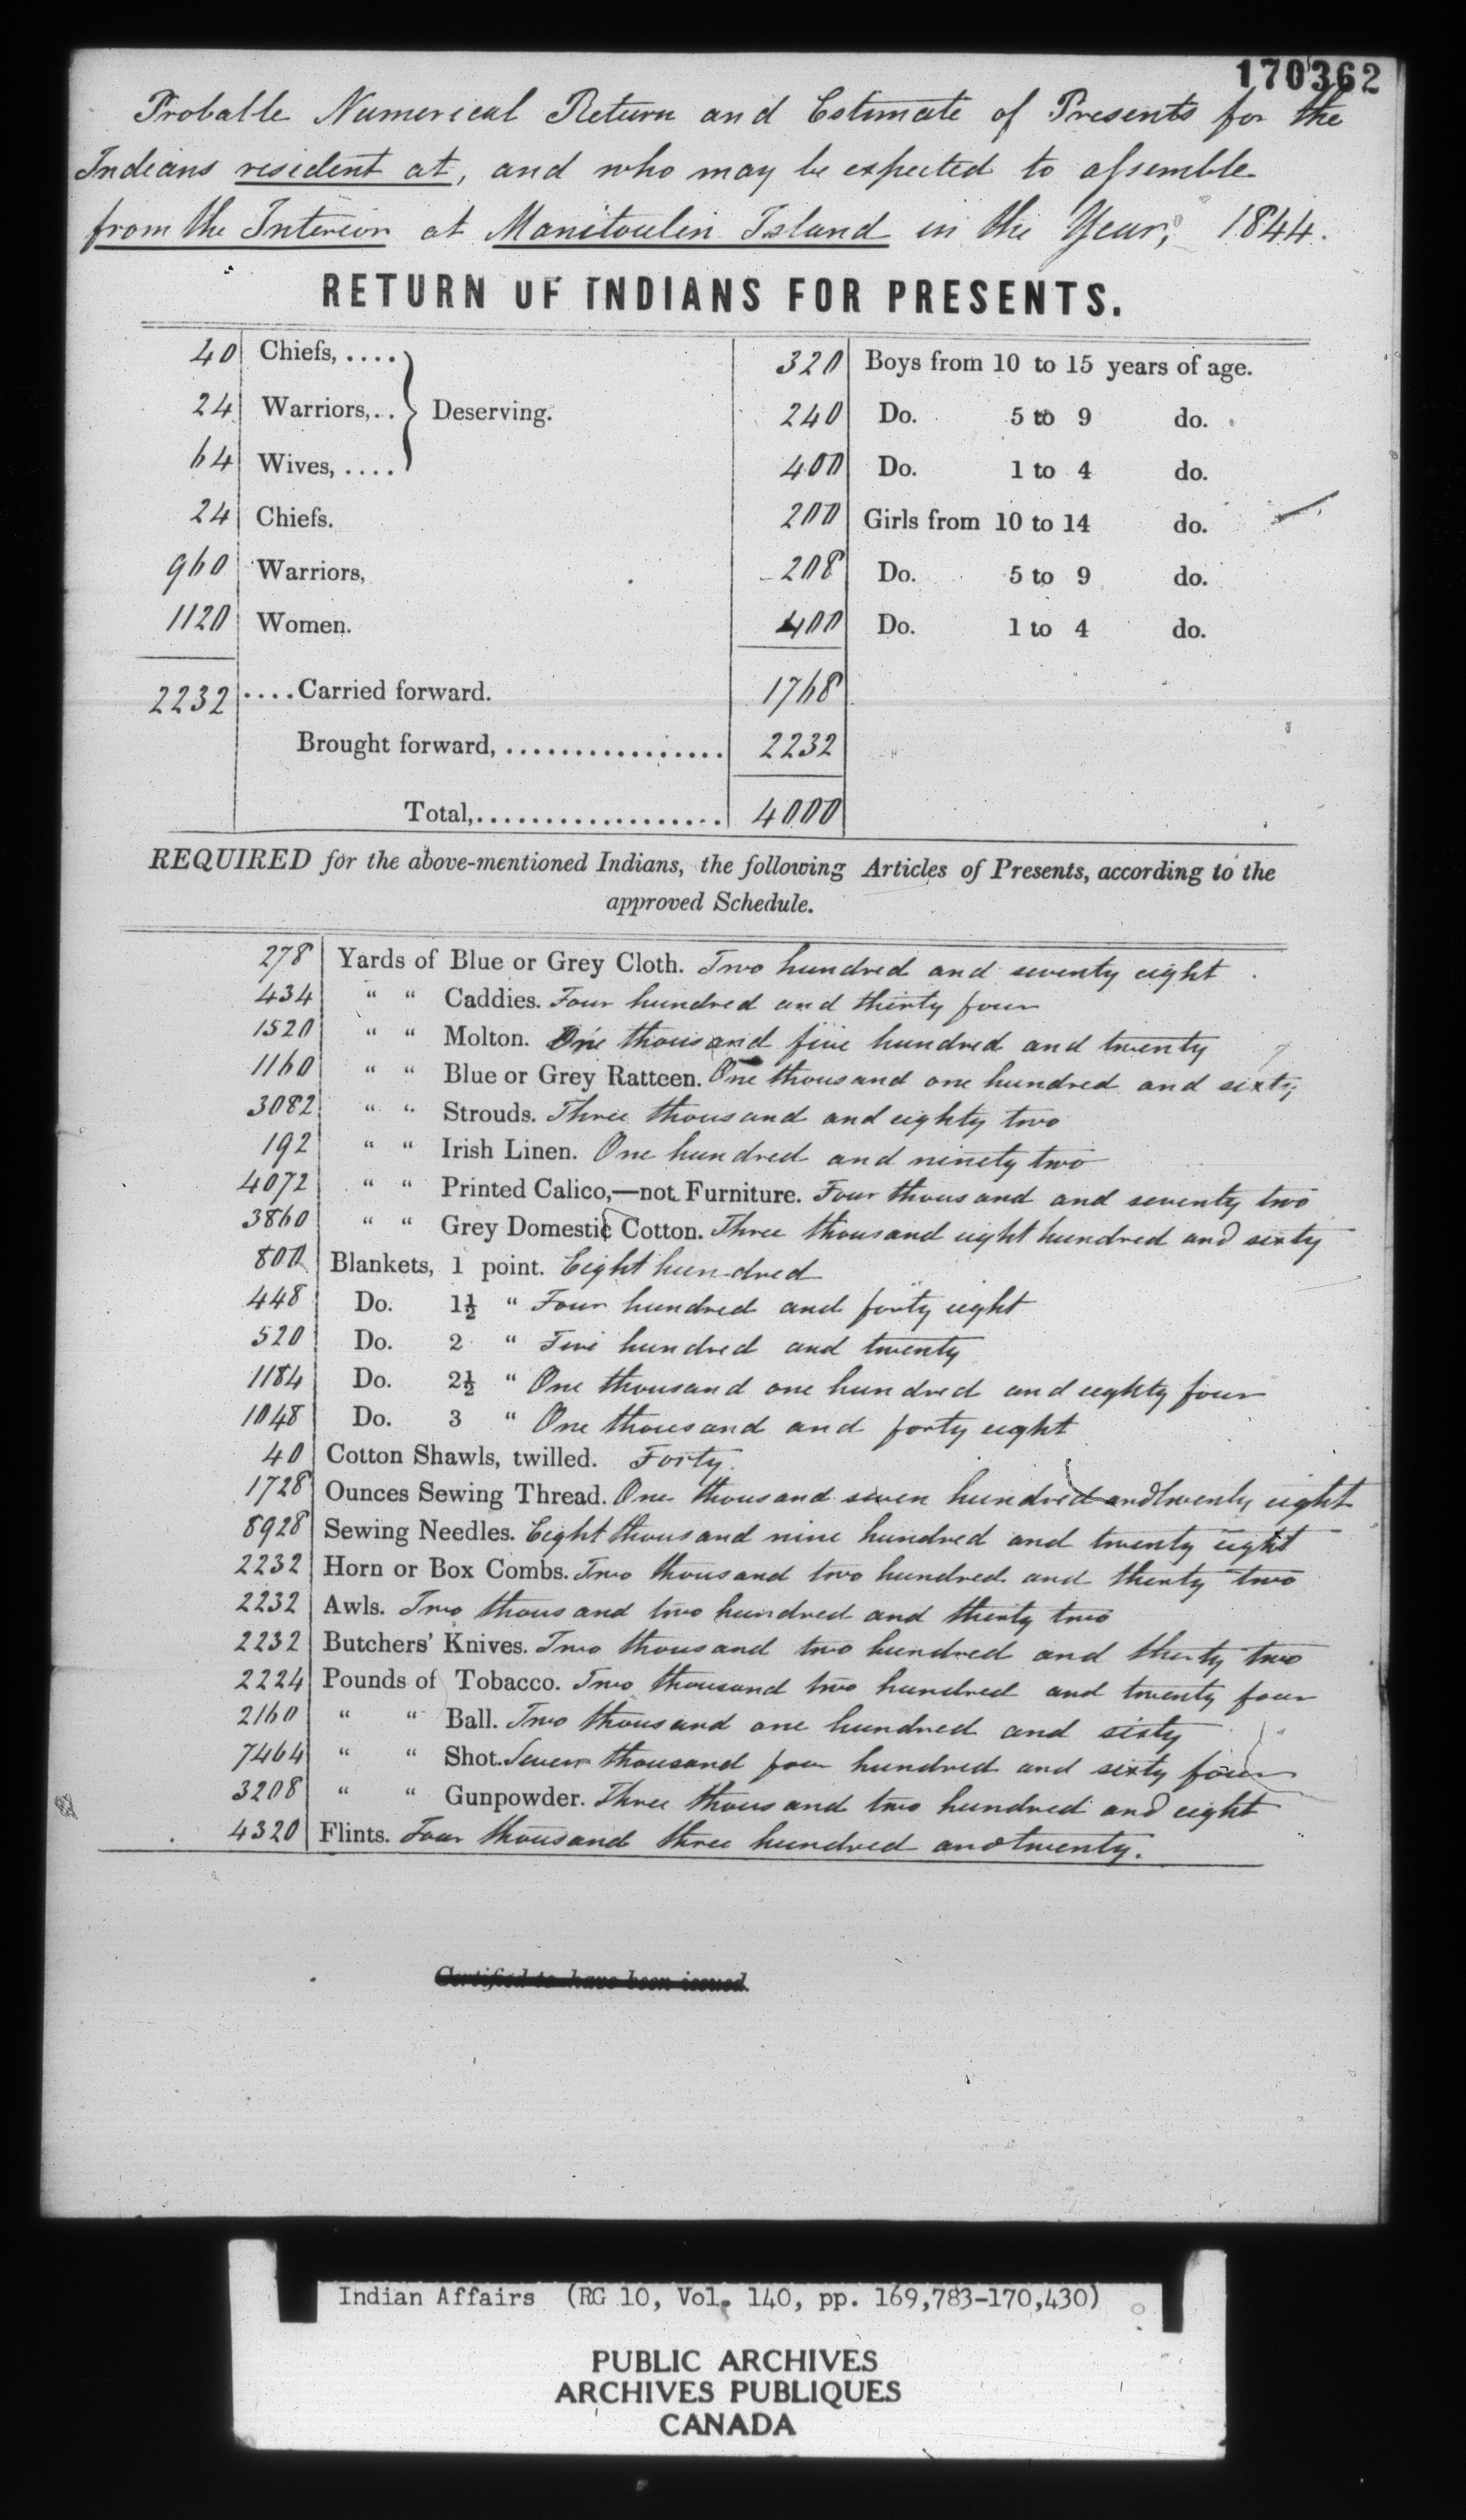 170362
Probable Numerical Return and Estimate of Presents for the
Indians resident at, and who may be expected to assemble
from the Interior at Manitoulin Island in the Year, 1844.
RETURN OF INDIANS FOR PRESENTS.
40 Chiefs, .... 320 Boys from 10 to 15 years of age.
24 Warriors, .. Deserving. 240 Do. 5 to 9 do.
64 Wives, .... 400 Do. 1 to 4 do.
24 Chiefs. 200 Girls from 10 to 14 do.
960 Warriors, 208 Do. 5 to 9 do.
1120 Women. 400 Do. 1 to 4 do.
2232 ....Carried forward. 1768
Brought forward, ................ 2232
Total, .................. 4000
REQUIRED for the above-mentioned Indians, the following Articles of Presents, according to the
approved Schedule.
278 Yards of Blue or Grey Cloth. Two hundred and seventy eight.
434 " " Caddies. Four hundred and thirty four
1520 " " Molton. One thousand five hundred and twenty
1160 " " Blue or Grey Ratteen. One thousand one hundred and sixty
3082 " " Strouds. Three thousand and eighty two
192 " " Irish Linen. One hundred and ninety two
4072 " " Printed Calico,—not Furniture. Four thousand and seventy two
3860 " " Grey Domestic Cotton. Three thousand eight hundred and sixty
800 Blankets, 1 point. Eight hundred
448 Do. 1½ " Four hundred and forty eight
520 Do. 2 " Five hundred and twenty
1184 Do. 2½ " One thousand one hundred and eighty four
1048 Do. 3 " One thousand and forty eight
40 Cotton Shawls, twilled. Forty.
1728 Ounces Sewing Thread. One thousand seven hundred and twenty eight
8928 Sewing Needles. Eight thousand nine hundred and twenty eight
2232 Horn or Box Combs. Two thousand two hundred and thirty two
2232 Awls. Two thousand two hundred and thirty two
2232 Butchers' Knives. Two thousand two hundred and thirty two
2224 Pounds of Tobacco. Two thousand two hundred and twenty four
2160 " " Ball. Two thousand one hundred and sixty
7464 " " Shot. Seven thousand four hundred and sixty four
3208 " " Gunpowder. Three thousand two hundred and eight
4320 Flints. Four thousand three hundred and twenty.
Certified to have been issued.
Indian Affairs (RG 10, Vol. 140, pp. 169,783-170,430)
PUBLIC ARCHIVES
ARCHIVES PUBLIQUES
CANADA